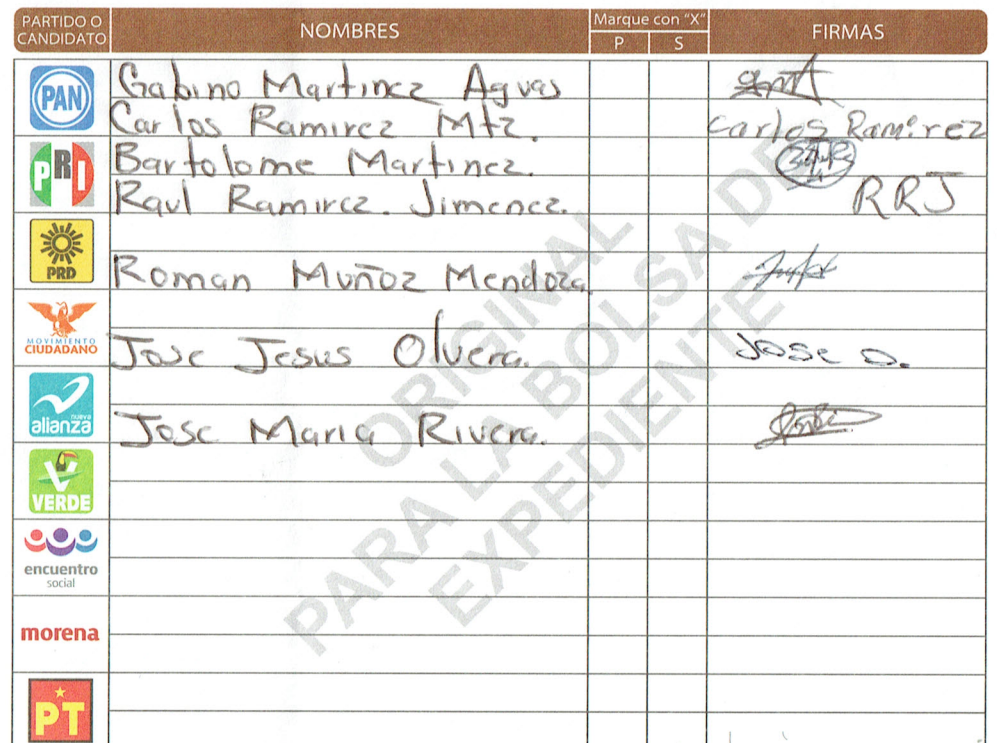 PARTIDO O CANDIDATO NOMBRES Marque con "X" P S FIRMAS
PAN Gabino Martinez Aguas
Carlos Ramirez Mtz. Carlos Ramirez
PRI Bartolome Martinez.
Raul Ramirez. Jimenez. RRJ
PRD
Roman Muñoz Mendoza.
MOVIMIENTO CIUDADANO
Jose Jesus Olvera. Jose O.
nueva alianza
Jose Maria Rivera.
VERDE
encuentro social
morena
PT
ORIGINAL
PARA LA BOLSA DE
EXPEDIENTE